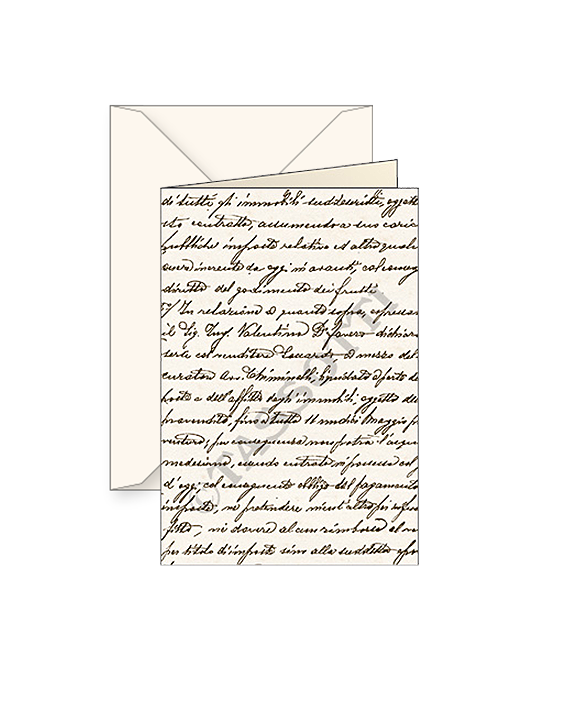 di tutti gli immobili suddescritti, oggett
sto contratto, assumendo a suo caric
pubbliche imposte relative ed altro quals
onere inerente da oggi in avanti, col conseg
diretto del godimento dei frutti
7°/ In relazione a quanto sopra, espressam
il Sig. Ing. Valentino Dr Favero dichiara
serla col venditore Leonardo a mezzo del
curatore Avv. Chiminelli, liquidato a parte de
posta a dell'affitto degli immobili, oggetto de
pravendita, fino a tutto 11 undici Maggio p
venturo, per conseguenza non potrà l'acqu
medesimo, quando entrato in possesso col
d'oggi, col conseguente obbligo del pagamento
imposte, nè pretendere nient'altro per
fitto, nè dovere alcun rimborso al
per titolo d'imposte sino alla suddetta
TASSOTTI